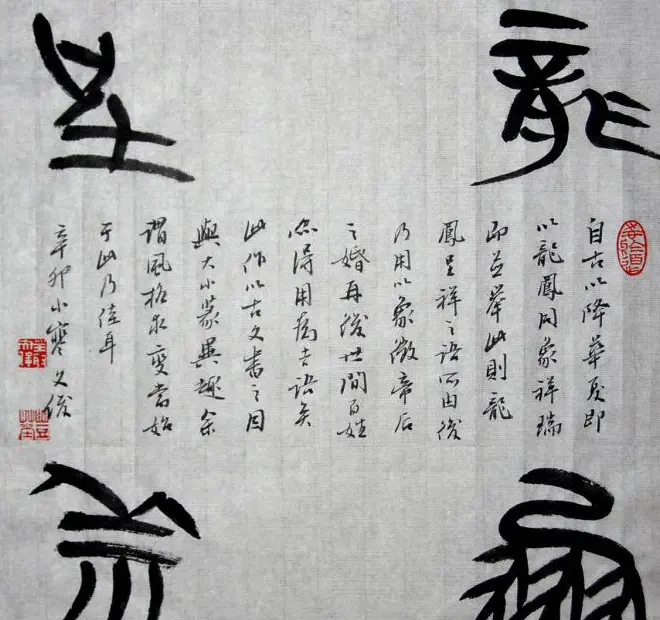 龍
鳳
呈
祥
自古以降華夏即
以龍鳳同象祥瑞
而並舉此則龍
鳳呈祥之語所由後
乃用以象徵帝后
之婚再後世間百姓
亦得用為吉語矣
此作以古文書之因
與大小篆異趣余
謂風格求變當始
于此乃佳耳
辛卯小寒文俊